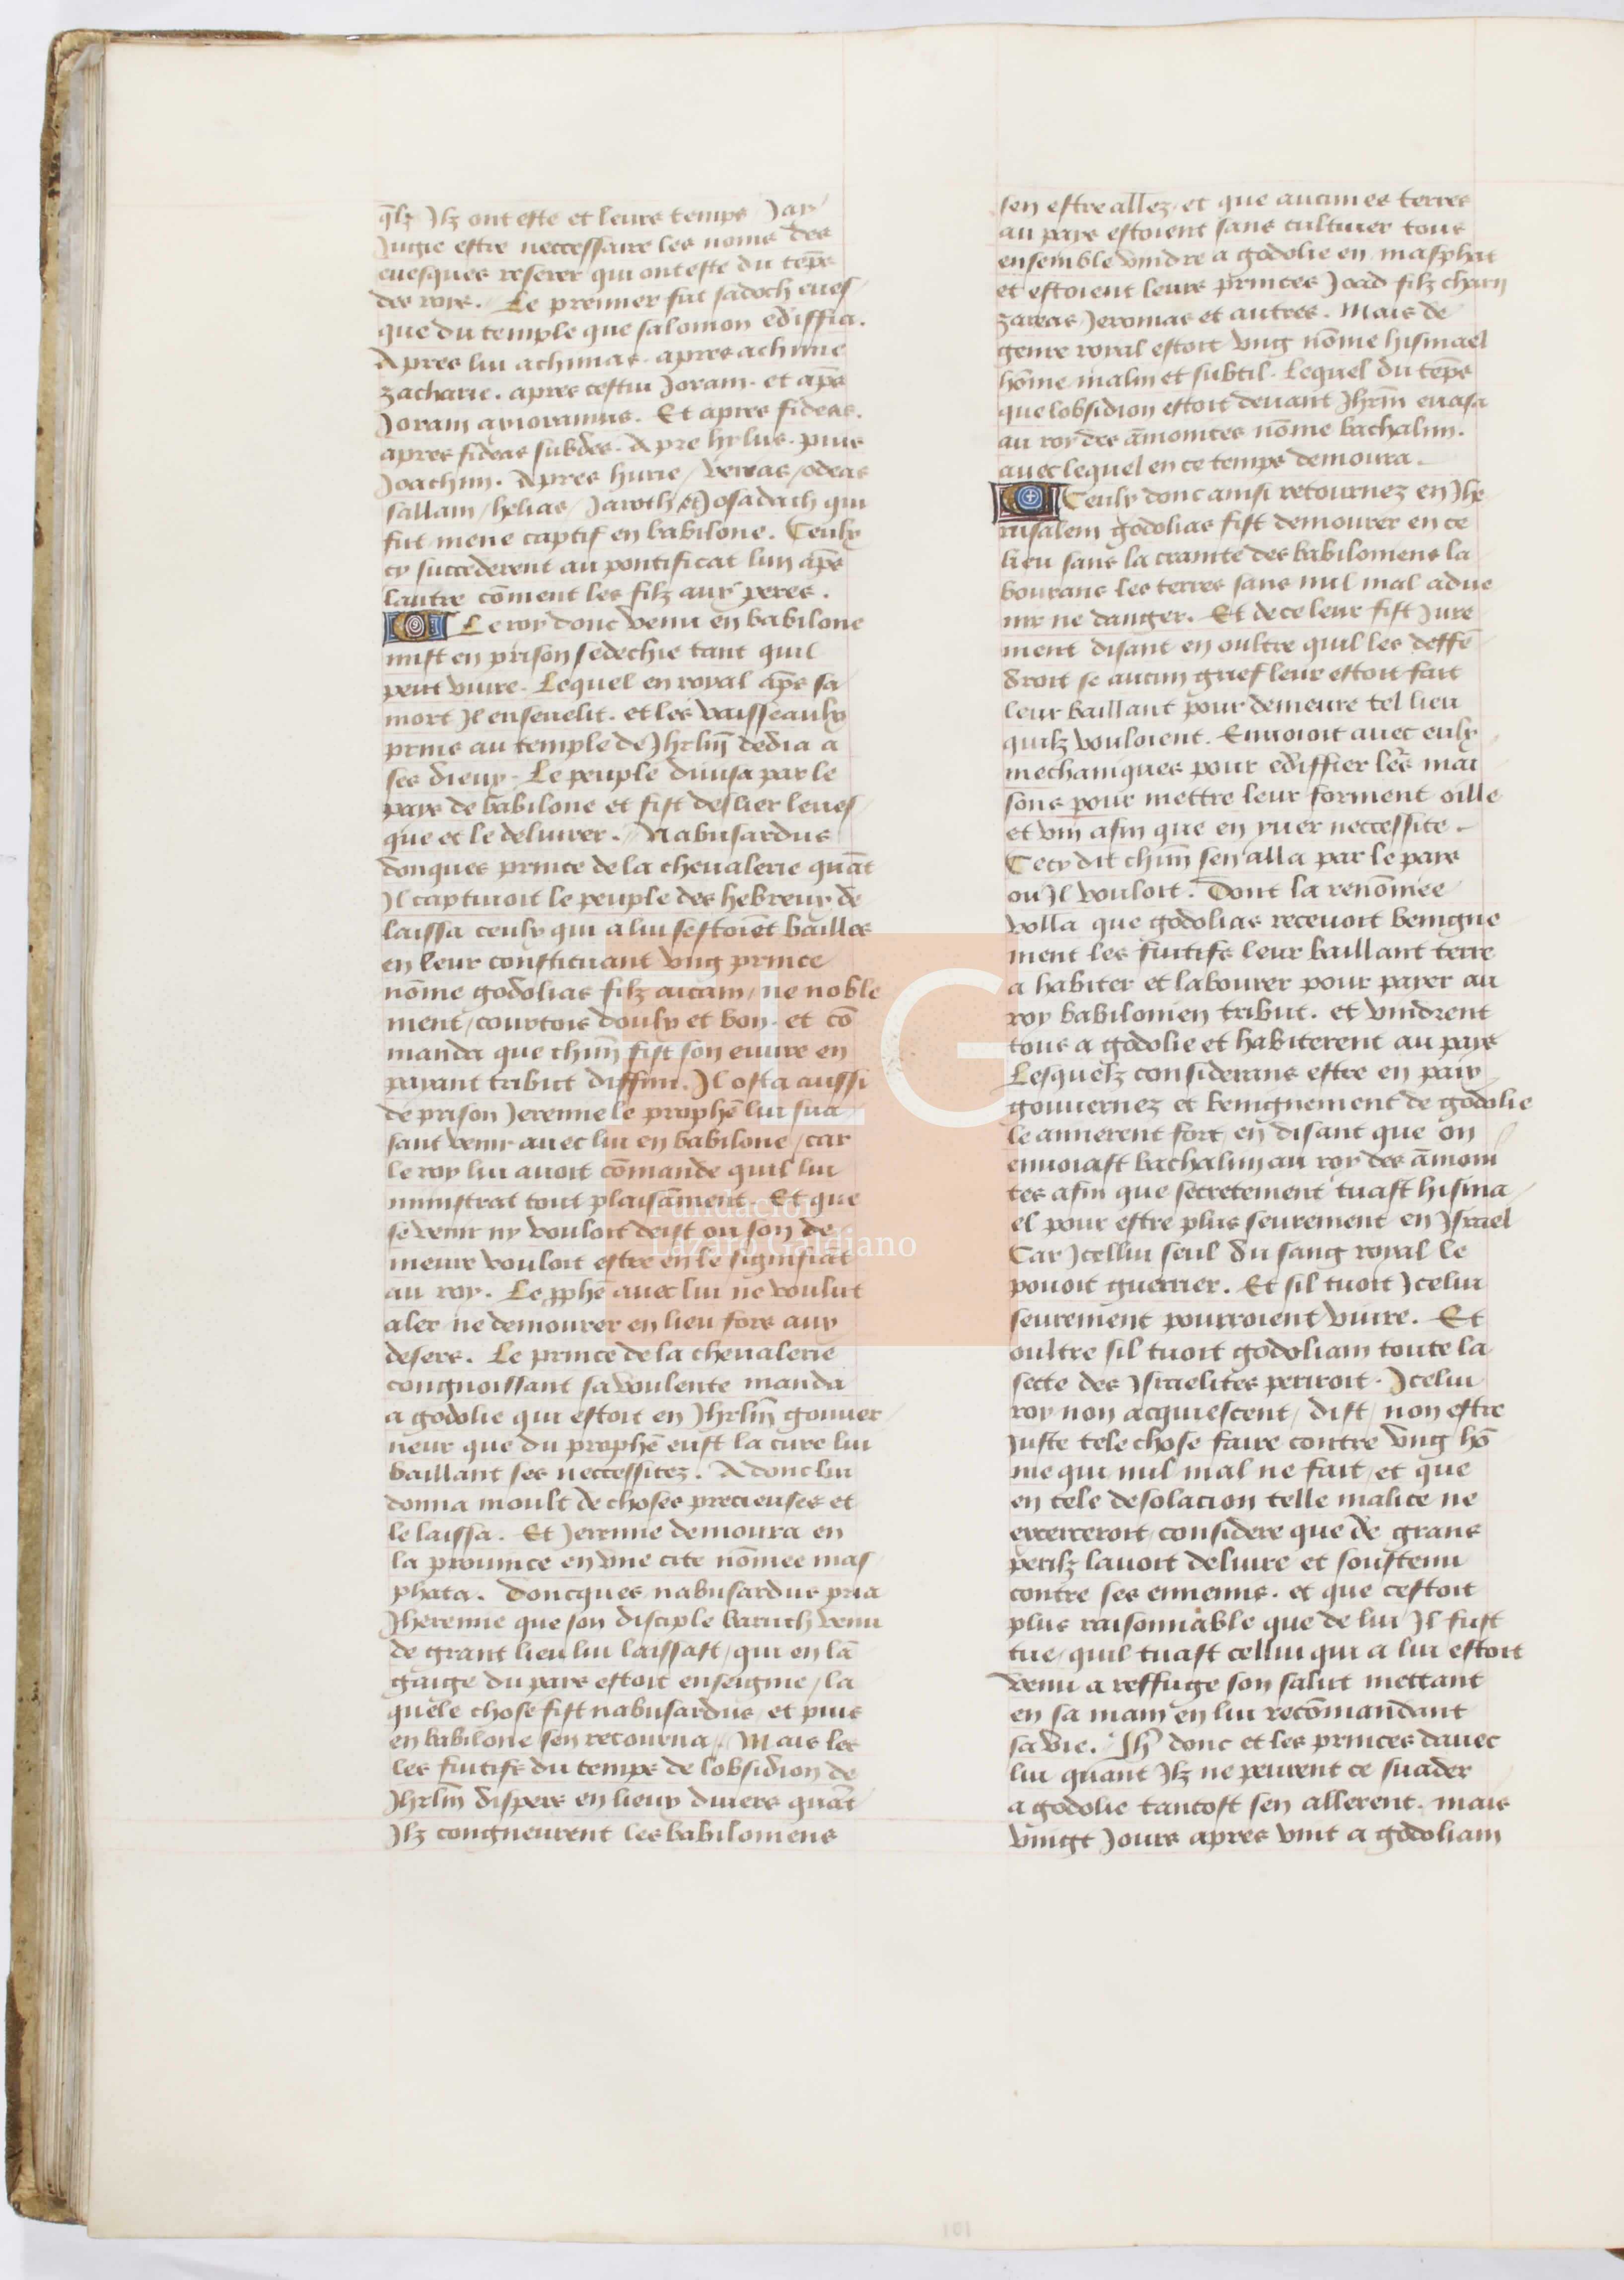 q̃lz Ilz ont este et leurs temps Jay
Jugie estre neccessaire les noms des
euesques reserer qui ont este du tẽps
des roys. Le premier fut sadoch eues
que du temple que salomon ediffia.
Apres lui achimas. apres achime
zacharie. apres cestui Joram. et ap̃s
Joram avioramus. Et apres fideas.
apres fideas subdes. Apre hylus. puis
Joachim. Apres hurie / verias / odeas
sallam / helias / Jaroth et Josadach qui
fut mene captif en babilone. Ceulx
cy succederent au pontificat lun ap̃s
lautre cõment les filz aux peres.
Le roy donc venu en babilone
mist en prison sedechie tant quil
peut viure. Lequel en royal ap̃s sa
mort Il enseuelit. et les vaisseaulx
prins au temple de Jhrlm̃ dedia a
ses dieux. Le peuple diuisa par le
pays de babilone et fist deslier leues
que et le deliurer. Nabusardus
donques prince de la cheualerie quãt
Il captiuoit le peuple des hebreux de
laissa ceulx qui a lui sestoiẽt bailles
en leur constituant vng prince
nõme godolias filz aicam / ne noble
ment / courtois doulx et bon. et cõ
manda que chũn fist son euure en
payant tribut diffini. Il osta aussi
de prison Jeremie le prophẽ lui sua
sant venir auec lui en babilone / car
le roy lui auoit cõmande quil lui
ministrat tout plaisãment. Et que
se venir ny vouloit deist ou son de
meure vouloit estre en le signifiãt
au roy. Le pphẽ auec lui ne voulut
aler ne demourer en lieu fors aux
desers. Le prince de la cheualerie
congnoissant sa voulente manda
a godolie qui estoit en Jhrlm̃ gouuer
neur que du prophẽ eust la cure lui
baillant ses neccessitez. Adonc lui
donna moult de choses precieuses et
le laissa. Et Jeremie demoura en
la prouince en vne cite nõmee mas
phata. Doncques nabusardus pria
Jheremie que son disciple baruch venu
de grant lieu lui laissast / qui en lã
gaige du pays estoit enseigne / la
quele chose fist nabusardus / et puis
en babilone sen retourna. Mais les
les fuitifs du temps de lobsidion de
Jhrlm̃ dispers en lieux diuers quãt
Ilz congneurent les babiloniens
sen estre allez / et que aucunes terres
au pays estoient sans cultiuer tous
ensemble vindrẽ a godolie en masphat
et estoient leurs princes Joad filz charij
zareas Jeromas et autres. Mais de
genre royal estoit vng nõme hismael
hõme malin et subtil. Lequel du tẽps
que lobsidion estoit deuant Jhrlm̃ euasa
au roy des ãmonites nõme bachalim.
auec lequel en ce temps demoura.
Ceulx donc ainsi retournez en Jhe
rusalem godolias fist demourer en ce
lieu sans la crainte des babiloniens la
bourans les terres sans nul mal adue
nir ne danger. Et de ce leur fist Jure
ment disant en oultre quil les deffẽ
droit se aucun grief leur estoit fait
leur baillant pour demeure tel lieu
quilz vouloient. Enuoioit auec eulx
mechaniques pour ediffier lẽrs mai
sons pour mettre leur forment oille
et vin afin que en yuer neccessite.
Cecy dit chũn sen alla par le pays
ou Il vouloit. Dont la renõmee
volla que godolias receuoit benigne
ment les fuitifs leur baillant terre
a habiter et labourer pour payer au
roy babilonien tribut. et vindrent
tous a godolie et habiterent au pays
Lesquelz considerans estre en paix
gouuernez et benignement de godolie
le aimerent fort en disant que on
enuoiast bachalim au roy des ãmoni
tes afin que secretement tuast hisma
el pour estre plus seurement en Israel
Car Icellui seul du sang royal le
pouoit guerrier. Et sil tuoit Icelui
seurement pourroient viure. Et
oultre sil tuoit godoliam toute la
secte des Israelites periroit. Icelui
roy non acquiescent / dist / non estre
Juste tele chose faire contre vng hõ
me qui nul mal ne fait / et que
en tele desolacion telle malice ne
exerceroit / considere que de grans
perilz lauoit deliure et soustenu
contre ses ennemis. et que cestoit
plus raisonnable que de lui Il fust
tue / quil tuast cellui qui a lui estoit
venu a reffuge son salut mettant
en sa main en lui recõmandant
sa vie. Jh̃ donc et les princes dauec
lui quant Ilz ne peurent ce suader
a godolie tantost sen allerent. mais
vingt Jours apres vint a godoliam
FLG
Fundación
Lázaro Galdiano
101